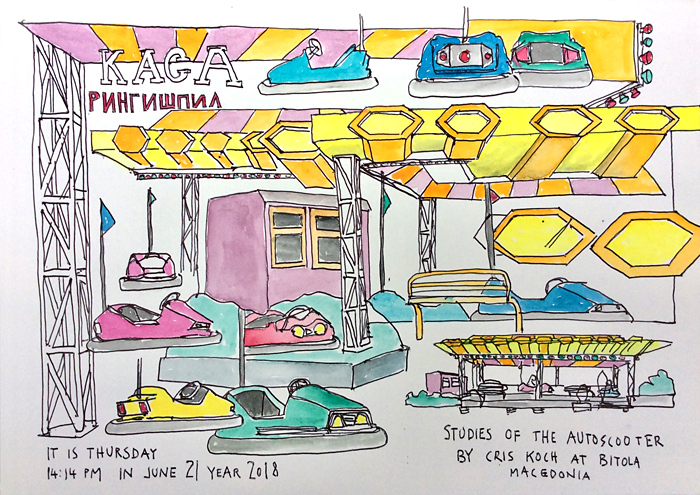 КАСА
РИНГИШПИЛ
IT IS THURSDAY
14:14 PM IN JUNE 21 YEAR 2018
STUDIES OF THE AUTOSCOOTER
BY CRIS KOCH AT BITOLA
MACEDONIA